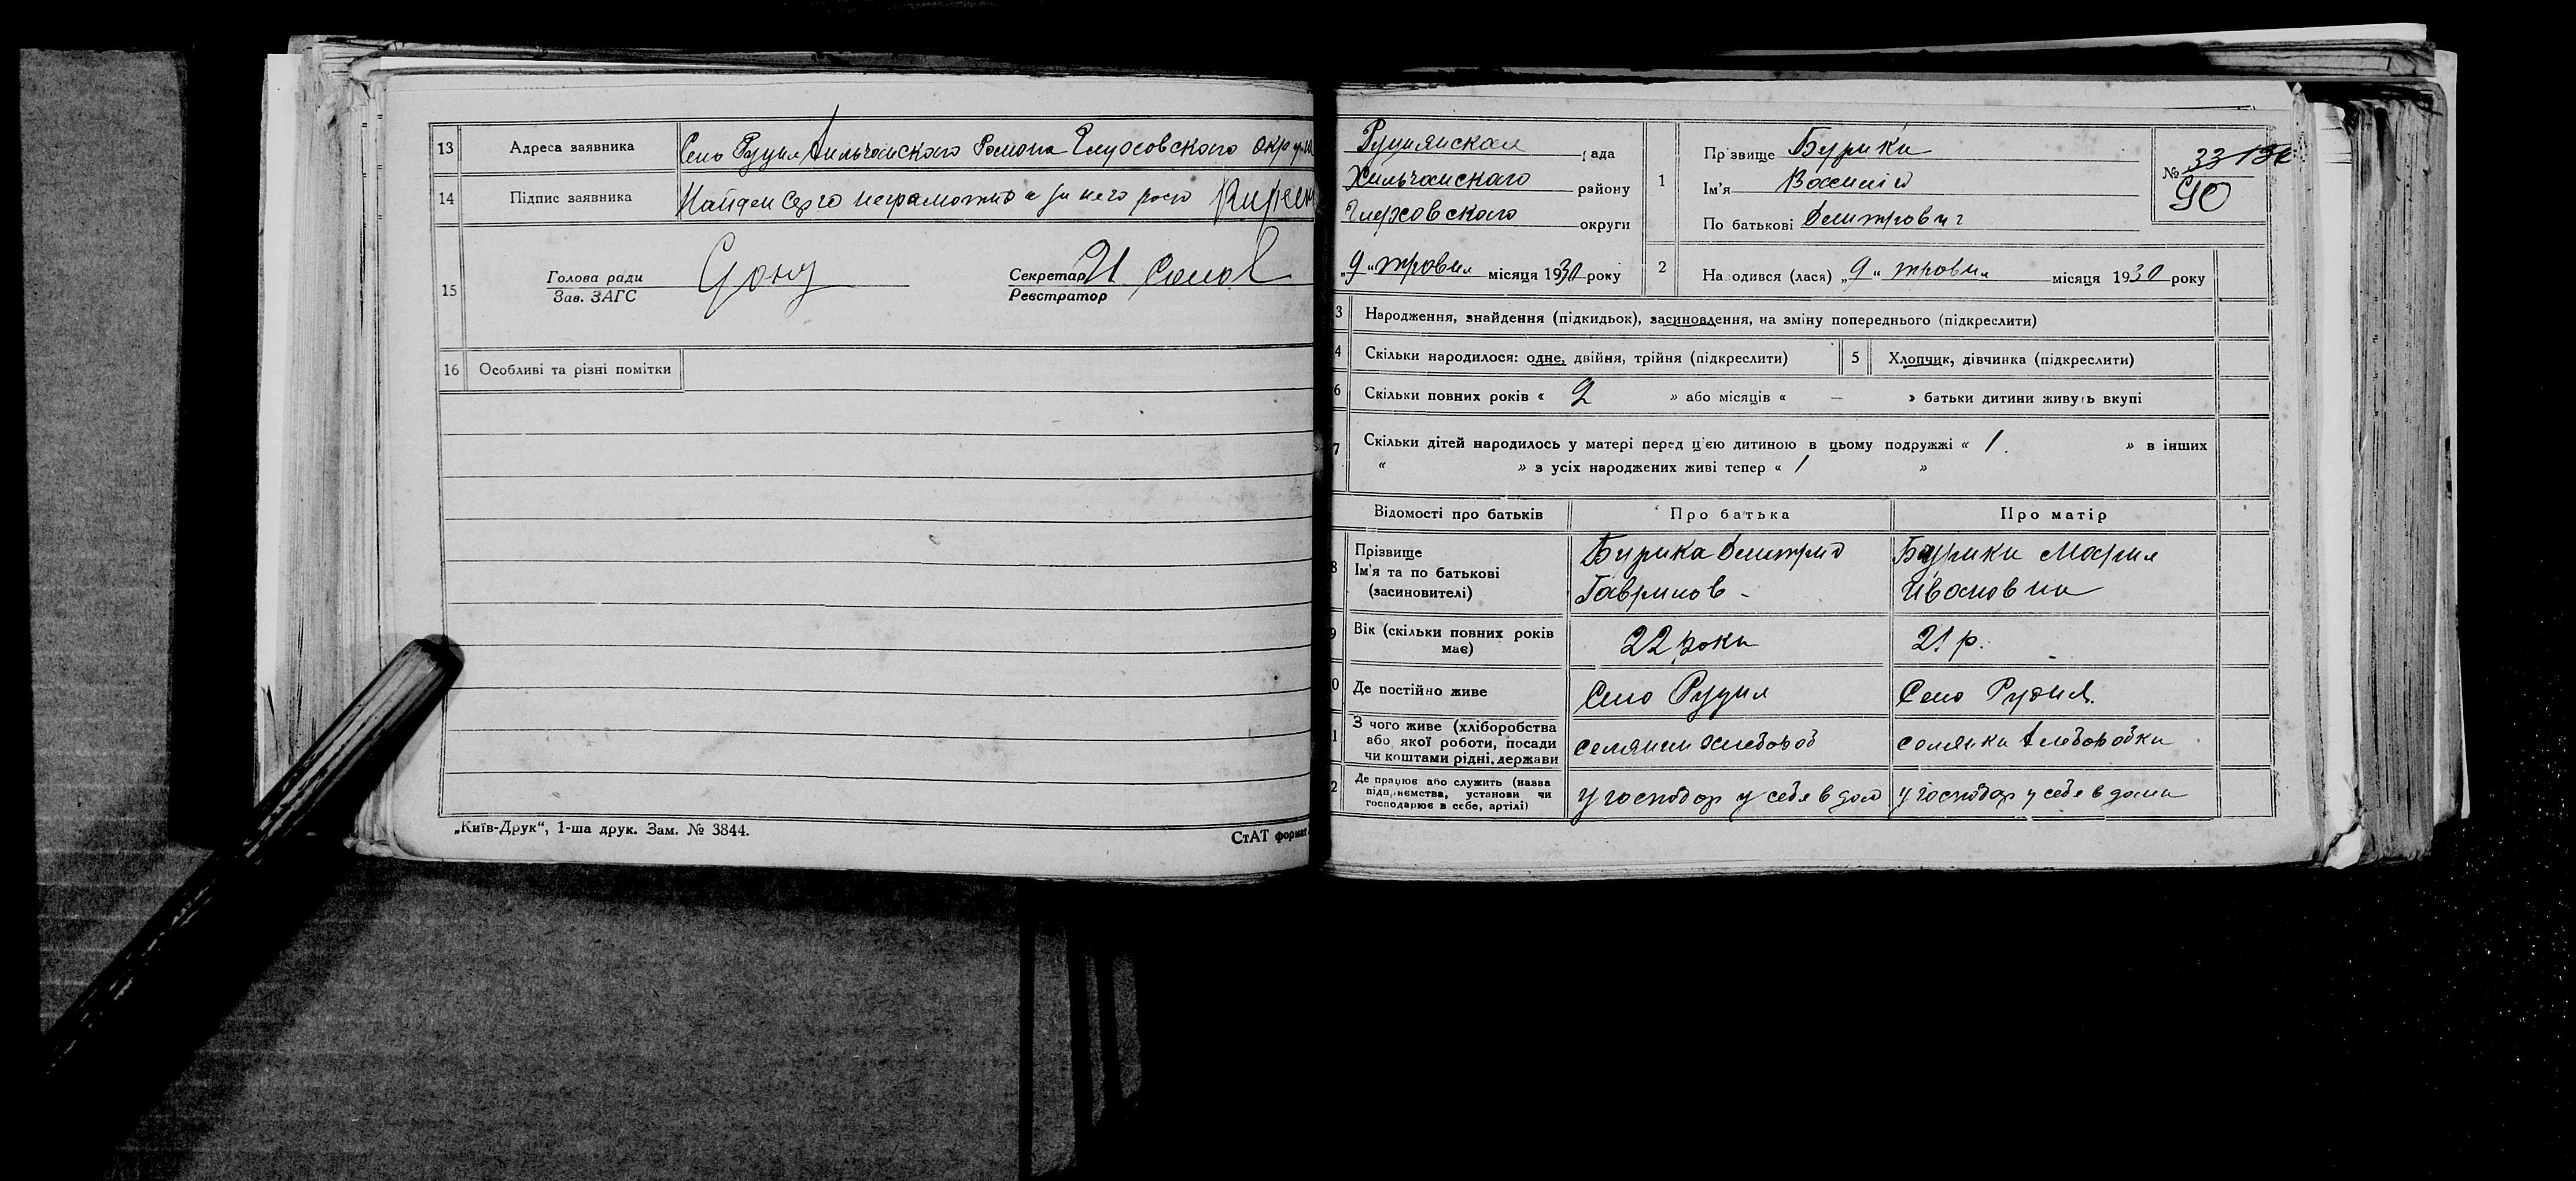 13 Адреса заявника Село Рудня Хильчанского Района Глуховского округа
14 Підпис заявника неграмотно а за него росп
15 Голова ради
Зав. ЗАГС
Секретар
Реєстратор
16 Особливі та різні помітки
„Київ-Друк“, 1-ша друк. Зам. № 3844.
СтАТ формат
Руднянская рада
Хильчанского району
Глуховского округи
„9“ травня місяця 1930 року
1 Прізвище Бурика
Ім'я Василий
По батькові Дмитрович
№ 33
90
2 Народився (лася) „9“ травня місяця 1930 року
3 Народження, знайдення (підкидьок), засиновлення, на зміну попереднього (підкреслити)
4 Скільки народилося: одне, двійня, трійня (підкреслити)
5 Хлопчик, дівчинка (підкреслити)
6 Скільки повних років « 2 » або місяців « — » батьки дитини живуть вкупі
7 Скільки дітей народилось у матері перед цією дитиною в цьому подружжі « 1. » в інших
« » з усіх народжених живі тепер « 1 »
Відомості про батьків Про батька Про матір
8 Прізвище
Ім'я та по батькові
(засиновителі)
Бурика Дмитрий
Гаврилов -
Бурика Мария
Ивановна
9 Вік (скільки повних років
має)
22 роки
21 р.
0 Де постійно живе Село Рудня Село Рудня
1 З чого живе (хліборобства
або якої роботи, посади
чи коштами рідні, держави
селянин хлебороб
селянка хлеборобка
2 Де працює або служить (назва
підприємства, установи чи
господарює в себе, артілі)
у господар у себя в дома
у господар у себе в дома